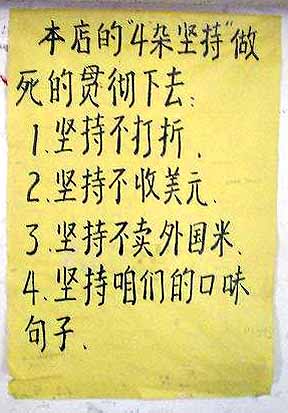 本店的"4杂坚持"做
死的贯彻下去:
1.坚持不打折、
2.坚持不收美元、
3.坚持不卖外国米、
4.坚持咱们的口味
句子、